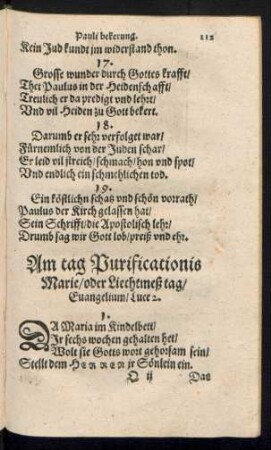 Pauli bekerung. 112
Kein Jud kundt jm widerstand thon.
17.
Grosse wunder durch Gottes krafft/
Thet Paulus in der Heidenschafft/
Treulich er da predigt vnd lehrt/
Vnd vil Heiden zu Gott bekert.
18.
Darumb er sehr verfolget war/
Fürnemlich von der Juden schar/
Er leid vil streich/schmach/hon vnd spot/
Vnd endlich ein schmehlichen tod.
19.
Ein köstlichn schatz vnd schön vorrath/
Paulus der Kirch gelassen hat/
Sein Schrifft/die Apostolisch lehr/
Drumb sag wir Gott lob/preiß vnd ehr.
Am tag Purificationis
Marie/oder Liechtmeß tag/
Euangelium/Luce 2.
1.
DA Maria im Kindelbett/
Ir sechs wochen gehalten het/
Wolt sie Gotts wort gehorsam sein/
Stellt dem HERREN jr Sönlein ein.
O ij Daß